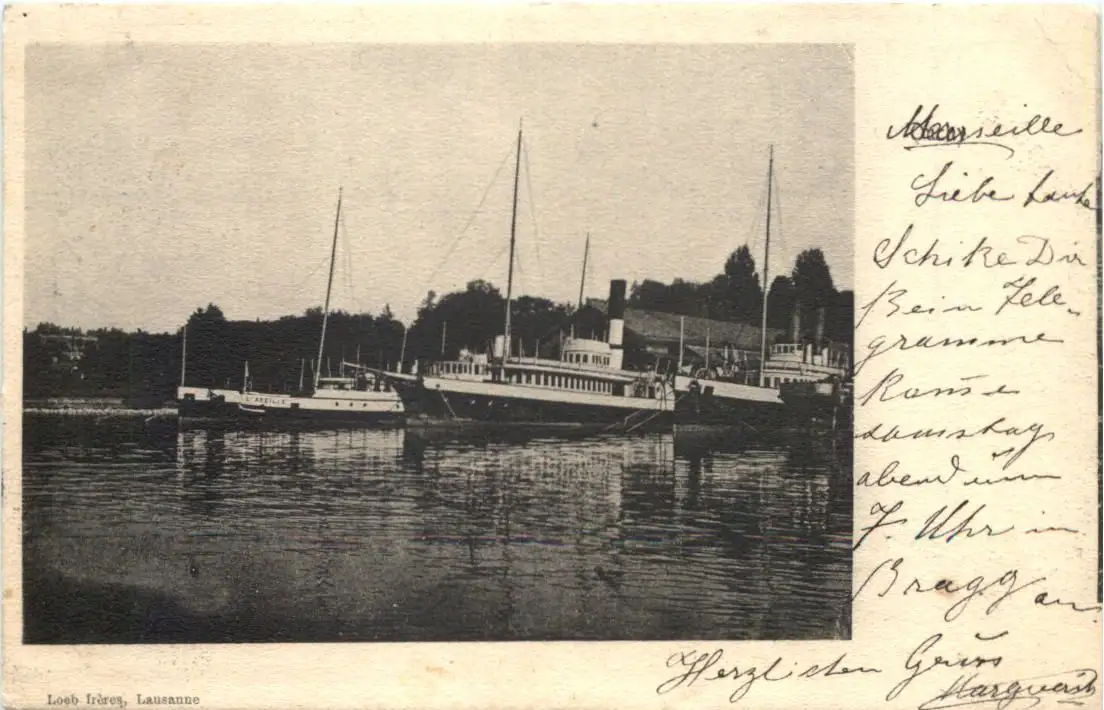 L'ABEILLE
Marseille
Liebe Tante
Schike Dir
Kein Tele-
gramme
Kome
Samstag
abend um
7. Uhr in
Brugg an
Herzlichen Gruss
Marguerit
Loeb frères, Lausanne